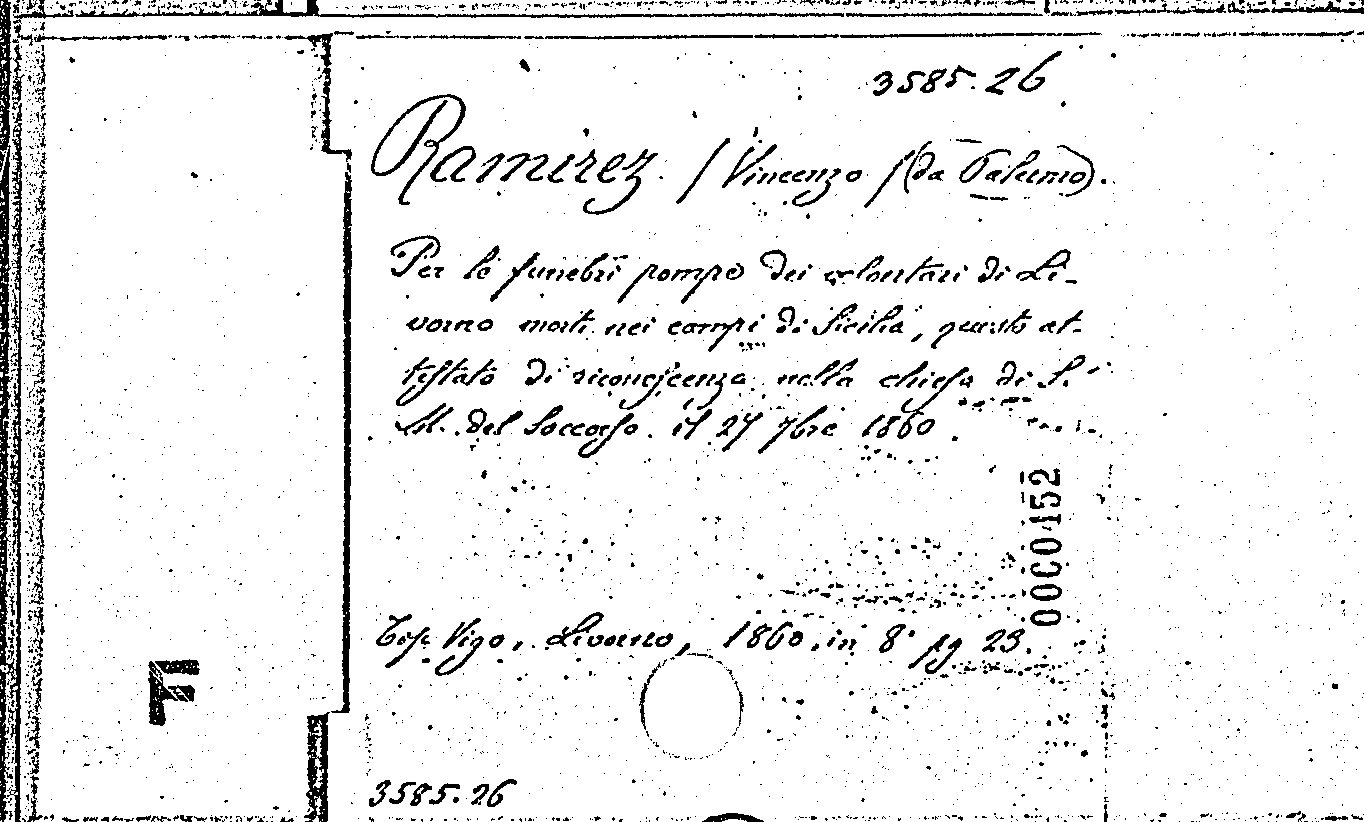 3585.26
Ramirez. / Vincenzo / (da Palermo).
Per le funebri pompe dei volontari di Li-
vorno morti nei campi di Sicilia, questo at-
testato di riconoscenza nella chiesa di S.
M. del Soccorso. il 27 7bre 1860.
0000152
Tip. Vigo, Livorno, 1860, in 8° pg 23.
F
3585.26